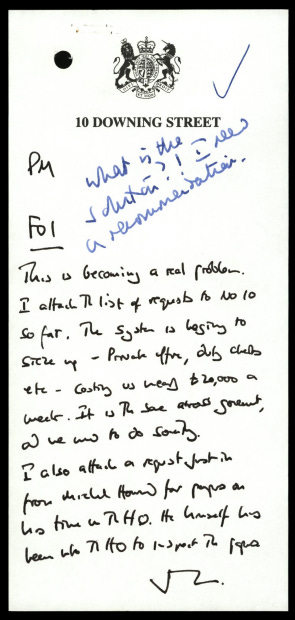 10 DOWNING STREET
PM
what is the
solution?! I need
a recommendation.
FOI
This is becoming a real problem.
I attach Th list of requests to No 10
so far. The System is beginning to
seize up - Private office, duty clerks
etc - costing us nearly £20,000 a
week. It is Th same across government,
and we need to do
I also attach a request just in
from Michael Howard for papers on
his time in Th HO. He himself has
been into Th HO to inspect The papers